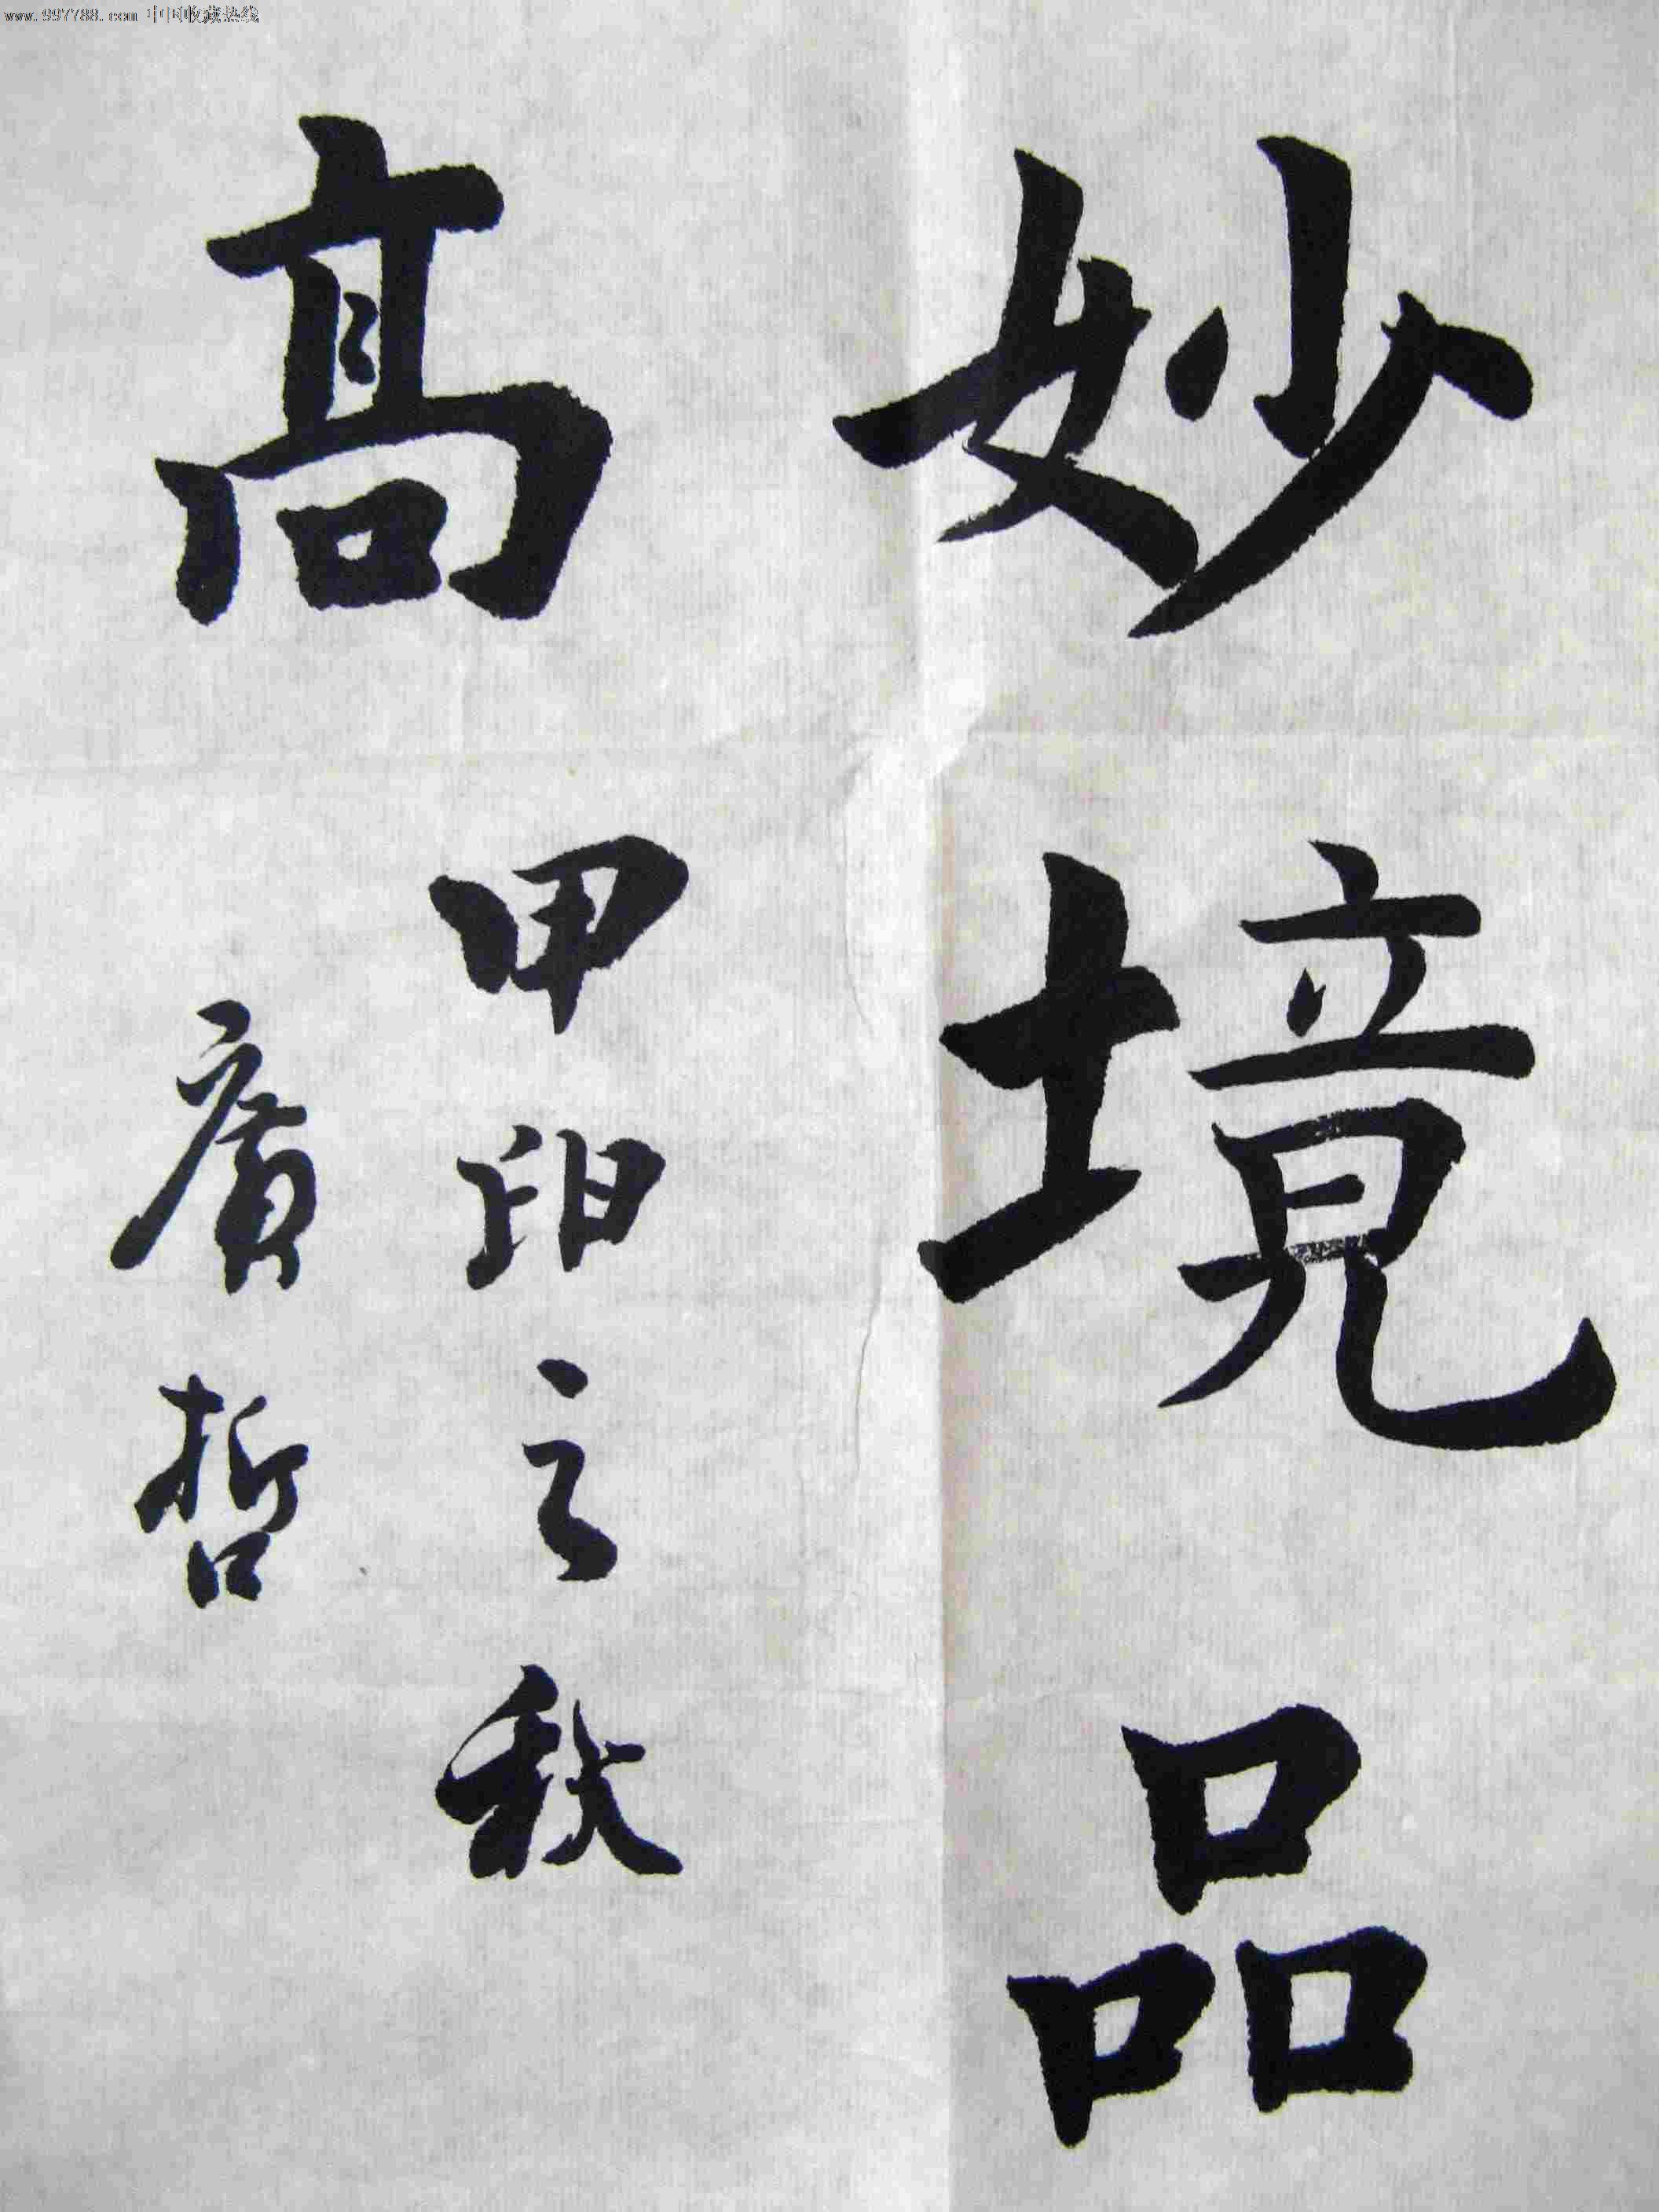 www.997788.com 中国收藏热线
妙境品
高
甲申之秋
廣哲